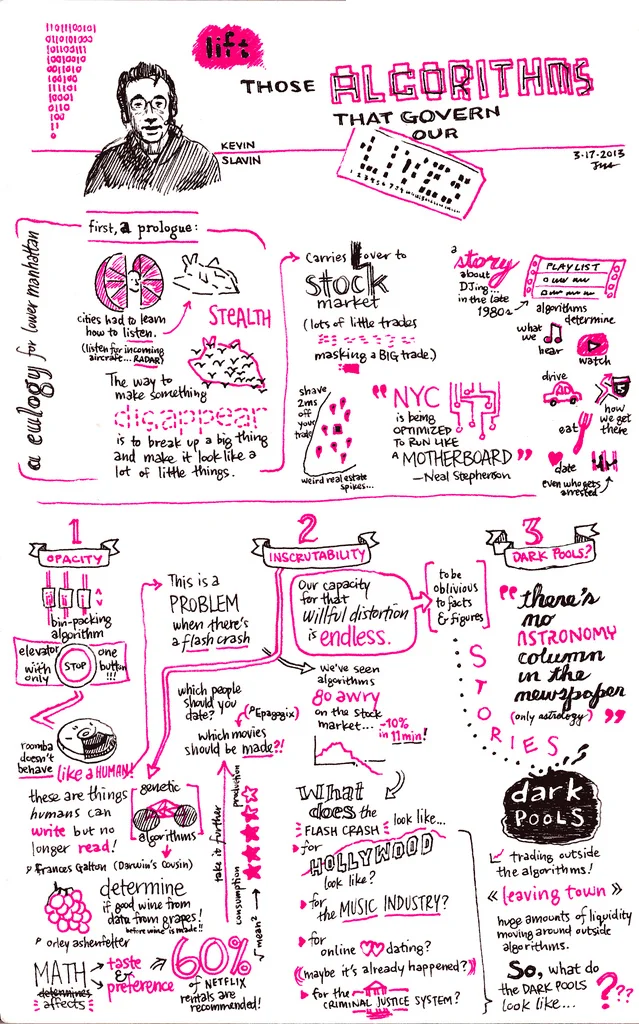 110100101
01101010
1010011
1001010
001010
11101
0010
010
10
1
0
lift
THOSE
ALGORITHMS
THAT GOVERN
OUR
LIVES
KEVIN
SLAVIN
3-17-2013
a eulogy for lower manhattan
first, a prologue:
cities had to learn
how to listen.
(listen for incoming
aircraft... RADAR)
STEALTH
The way to
make something
disappear
is to break up a big thing
and make it look like a
lot of little things.
Carries over to
stock
market
(lots of little trades
masking a BIG trade.)
shave
2ms
off
your
trade
weird real estate
spikes...
"NYC
is being
OPTIMIZED
TO RUN LIKE
A MOTHERBOARD"
—Neal Stephenson
a
story
about
DJing...
in the late
1980s
PLAYLIST
algorithms
determine
what
we
hear
watch
drive
how
we get
there
eat
date
even who gets
arrested
1
OPACITY
bin-packing
algorithm
elevator
with
only
STOP
one
button
!!!
roomba
doesn't
behave
like a HUMAN!
these are things
humans can
write but no
longer read!
genetic
algorithms
Frances Galton (Darwin's Cousin)
determine
if good wine from
data from grapes!
before wine is made!!
orley ashenfelter
MATH
determines
affects
taste
&
preference
60%
of NETFLIX
rentals are
recommended!
2
INSCRUTABILITY
This is a
PROBLEM
when there's
a flash crash
Our capacity
for that
willful distortion
is endless.
to be
oblivious
to facts
& figures
which people
should you
date?
(Epagogix)
which movies
should be made?!
take it further
consumption
production
mean²
we've seen
algorithms
go awry
on the stock
market...
-10%
in 11 min!
What
does the
FLASH CRASH look like...
for
HOLLYWOOD
look like?
for
the MUSIC INDUSTRY?
for
online dating?
(maybe it's already happened?)
for the
CRIMINAL JUSTICE SYSTEM?
3
DARK POOLS?
"there's
no
ASTRONOMY
column
in the
newspaper
(only astrology)"
STORIES
dark
POOLS
trading outside
the algorithms!
«leaving town»
huge amounts of liquidity
moving around outside
algorithms.
So, what do
the DARK POOLS
look like...
???